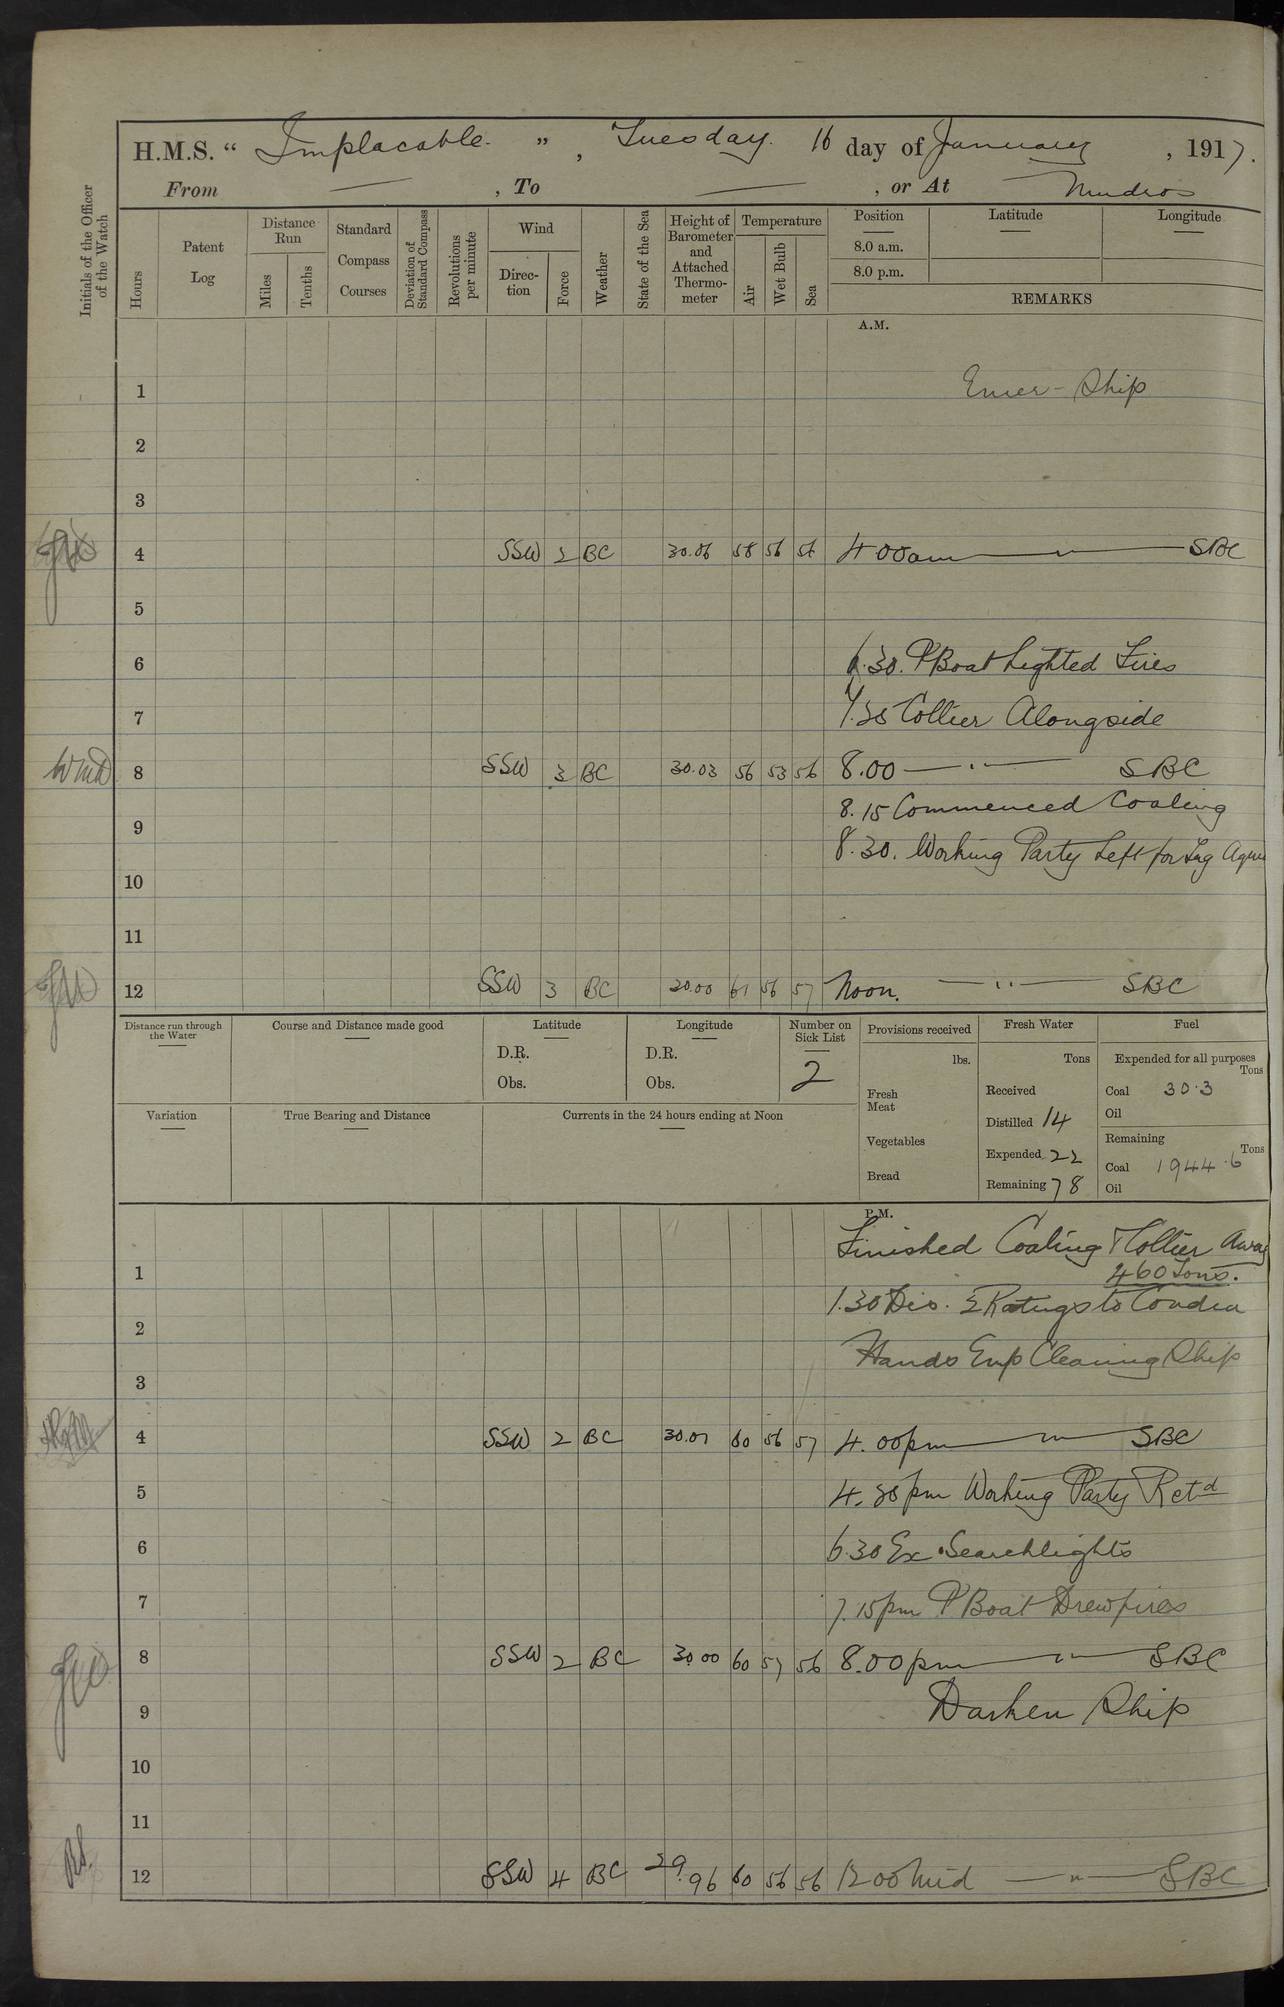 H.M.S. “ Implacable. ” , Tuesday. 16 day of January , 1917.
From — , To — , or At Mudros
Initials of the Officer of the Watch
Hours
Patent Log
Distance Run
Miles
Tenths
Standard Compass Courses
Deviation of Standard Compass
Revolutions per minute
Wind
Direc-tion
Force
Weather
State of the Sea
Height of Barometer and Attached Thermo-meter
Temperature
Air
Wet Bulb
Sea
Position Latitude Longitude
8.0 a.m.
8.0 p.m.
REMARKS
A.M.
1 Ship
2
3
4 SSW 2 BC 30.06 58 56 56 4 00am — " — SBC
5
6 6.30. P'Boat Lighted Fires
7 7.35 Collier Alongside
8 SSW 3 BC 30.03 56 53 56 8.00 — " — SBC
8.15 Commenced Coaling
9
8.30. Working Party Left for
10
11
12 SSW 3 BC 30.00 61 56 57 Noon. — " — SBC
Distance run through the Water
Course and Distance made good
Latitude
D.R.
Obs.
Longitude
D.R.
Obs.
Number on Sick List
2
Variation
True Bearing and Distance
Currents in the 24 hours ending at Noon
Provisions received
lbs.
Fresh Meat
Vegetables
Bread
Fresh Water
Tons
Received
Distilled 14
Expended 22
Remaining 78
Fuel
Expended for all purposes
Tons
Coal 30.3
Oil
Remaining
Tons
Coal 1944.6
Oil
P.M.
Finished Coaling & Collier Away
1 460 Tons.
1.30 Dis. 2 Ratings to
2
Hands Emp Cleaning Ship
3
4 SSW 2 BC 30.01 60 56 57 4.00pm — " — SBC
5 4.30pm Working Party Retd
6 6.30 Ex. Searchlights
7 7.15pm P'Boat Drew fires
8 SSW 2 BC 30.00 60 57 56 8.00pm — " — SBC
9 Darken Ship
10
11
12 SSW 4 BC 29.96 60 56 56 12 00 Mid — " — SBC